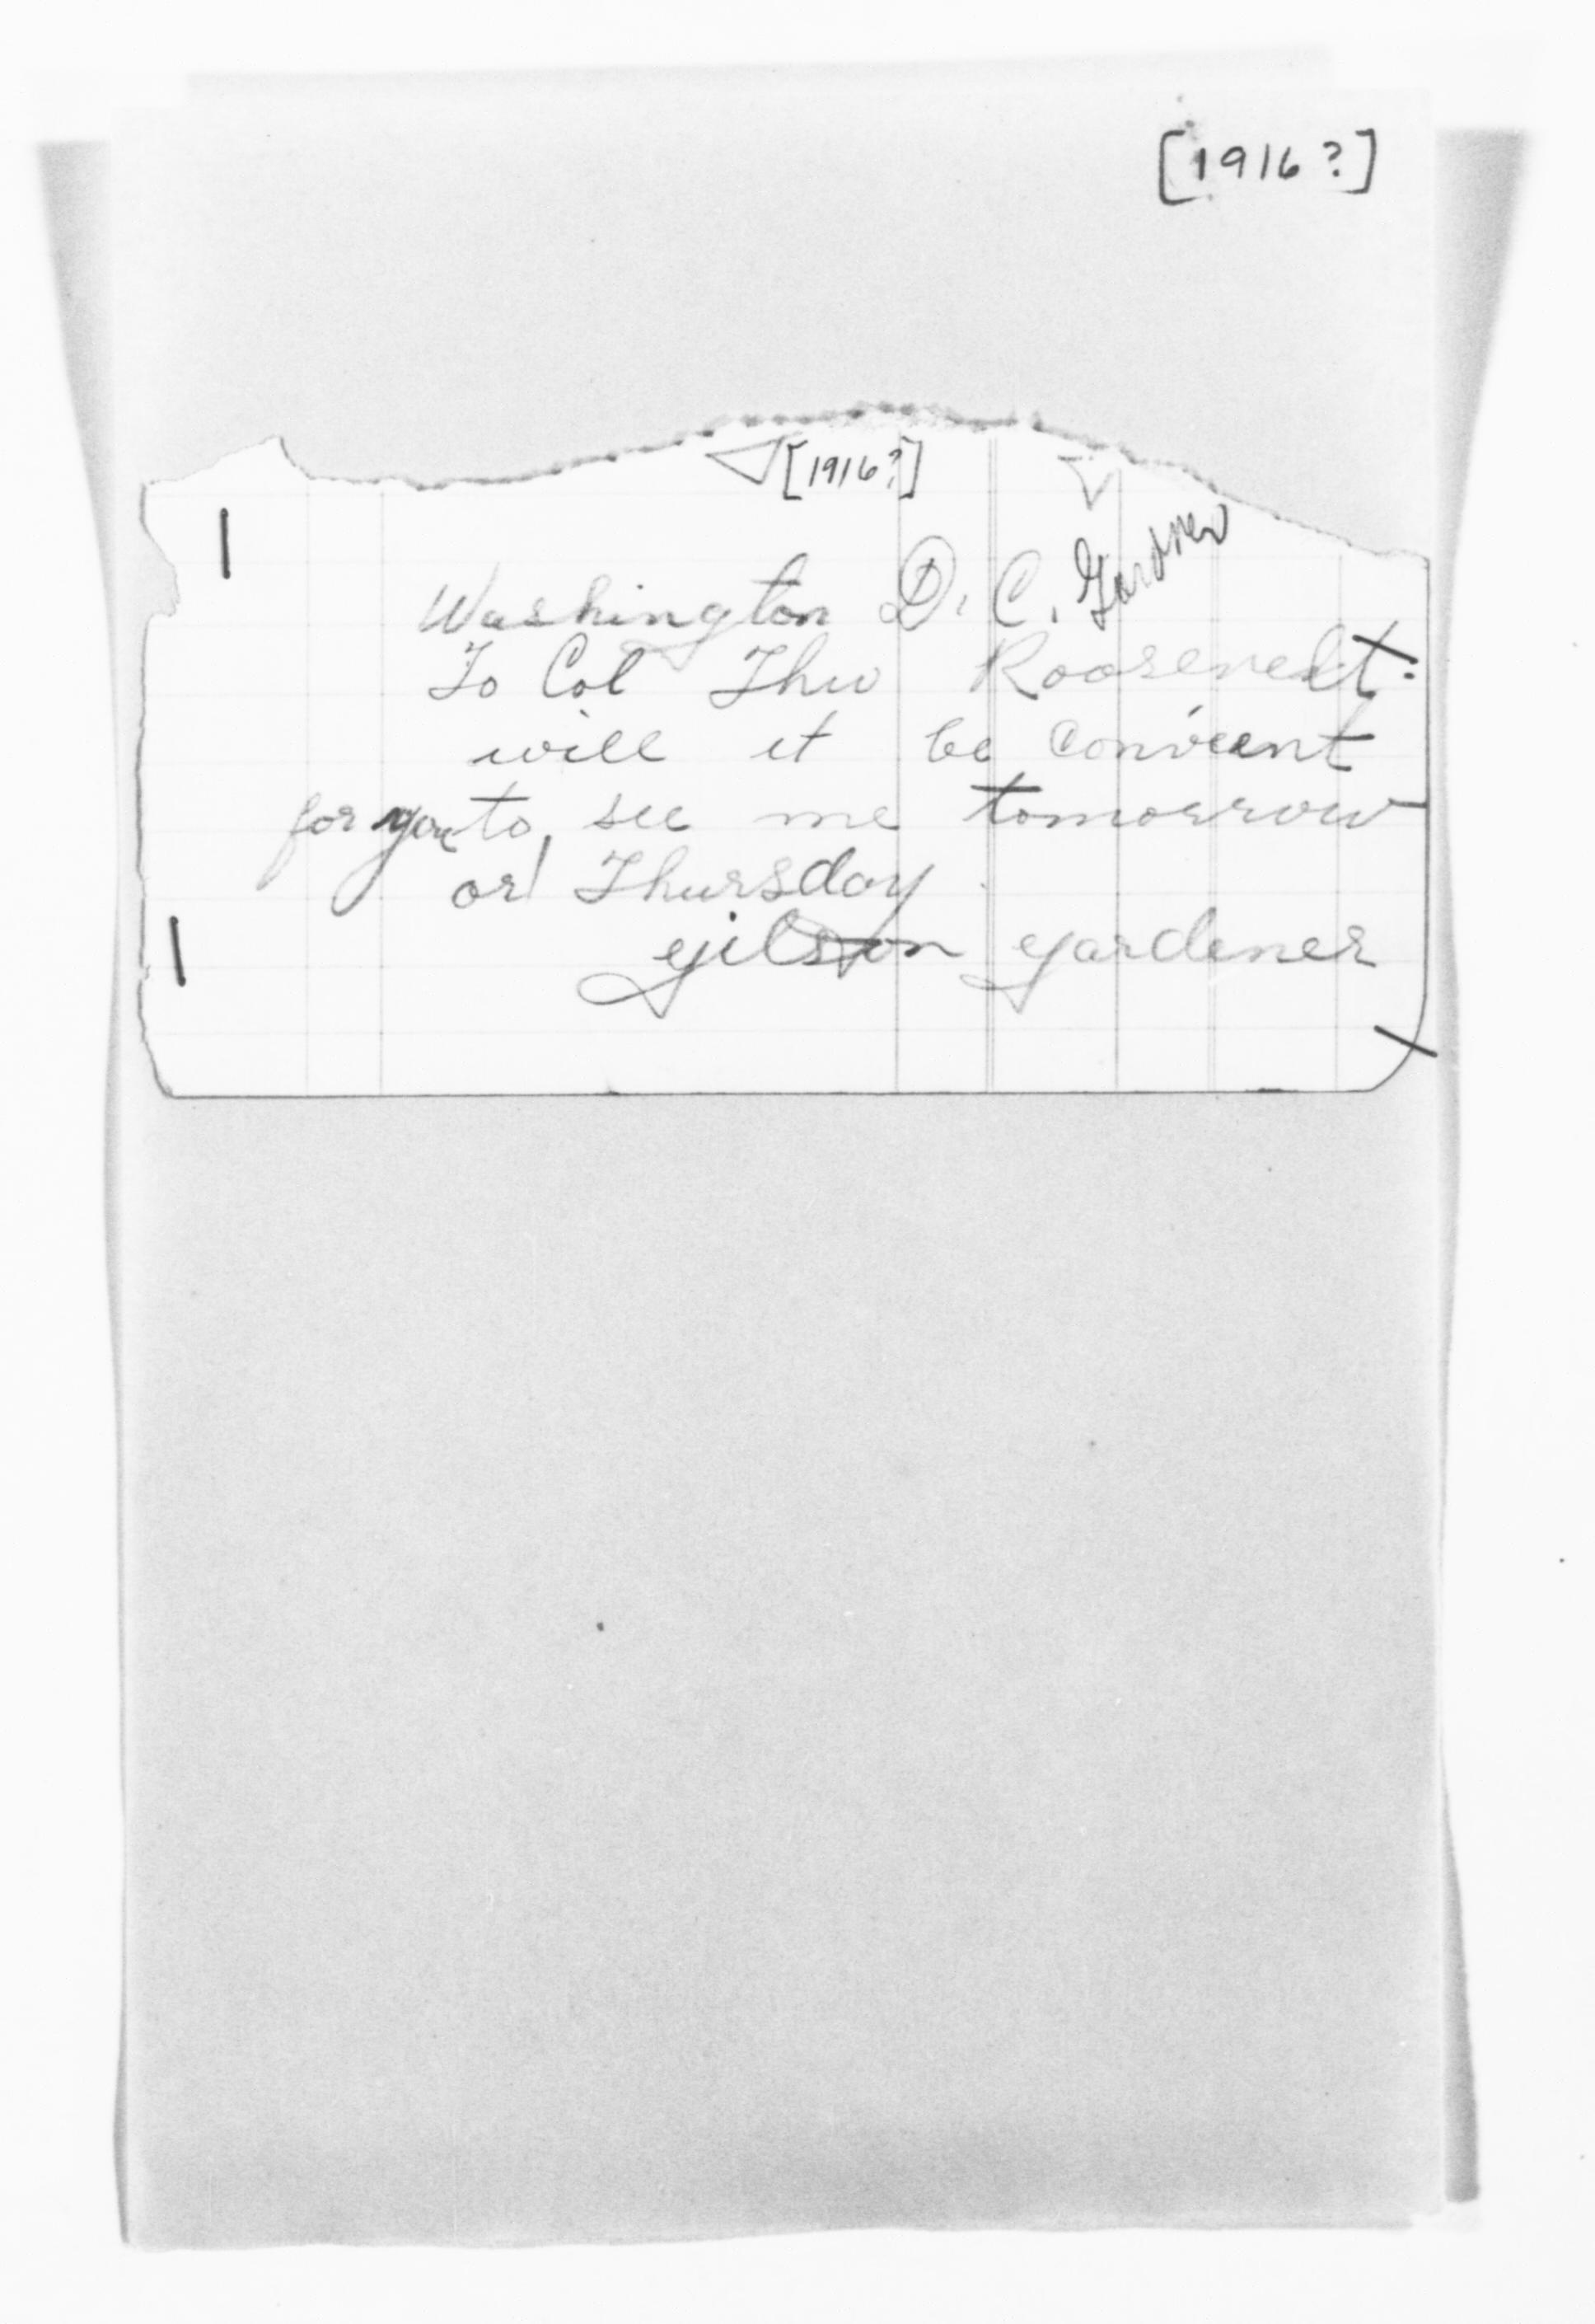 [1916?]
[1916?]
Gardner
Washington D. C.
To Col Theo Roosevelt:
will it be convient
for you to see me tomorrow
or Thursday
gilson gardener